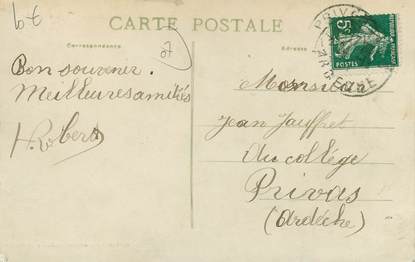 lot
CARTE POSTALE
07
Correspondance
Adresse
PRIVAS
ARDECHE
5c
POSTES
Bon souvenir.
Meilleures amitiés
H. Robert
Monsieur
Jean Jauffret
du collège
Privas
(Ardèche)